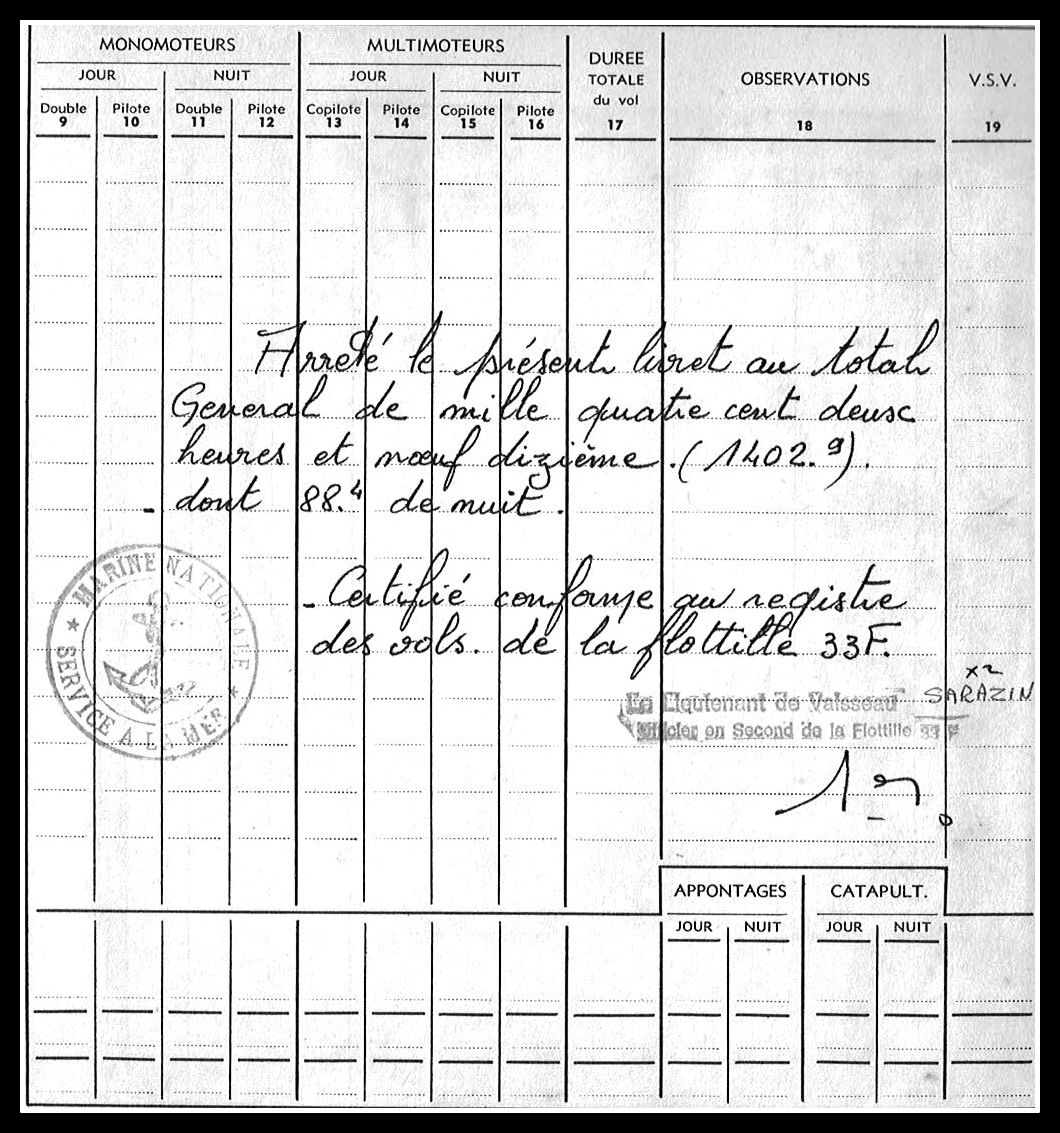 MONOMOTEURS MULTIMOTEURS DUREE TOTALE du vol OBSERVATIONS V.S.V.
JOUR NUIT JOUR NUIT
Double Pilote Double Pilote Copilote Pilote Copilote Pilote
9 10 11 12 13 14 15 16 17 18 19
Arreté le présent livret au total
General de mille quatre cent deusc
heures et nœuf dizième. (1402.9).
- dont 88.4 de nuit.
MARINE NATIONALE
★ SERVICE A LA MER ★
- Certifié conforme au registre
des vols. de la flottille 33F.
x2
Le Lieutenant de Vaisseau SARAZIN
Officier en Second de la Flottille 33 F
APPONTAGES CATAPULT.
JOUR NUIT JOUR NUIT